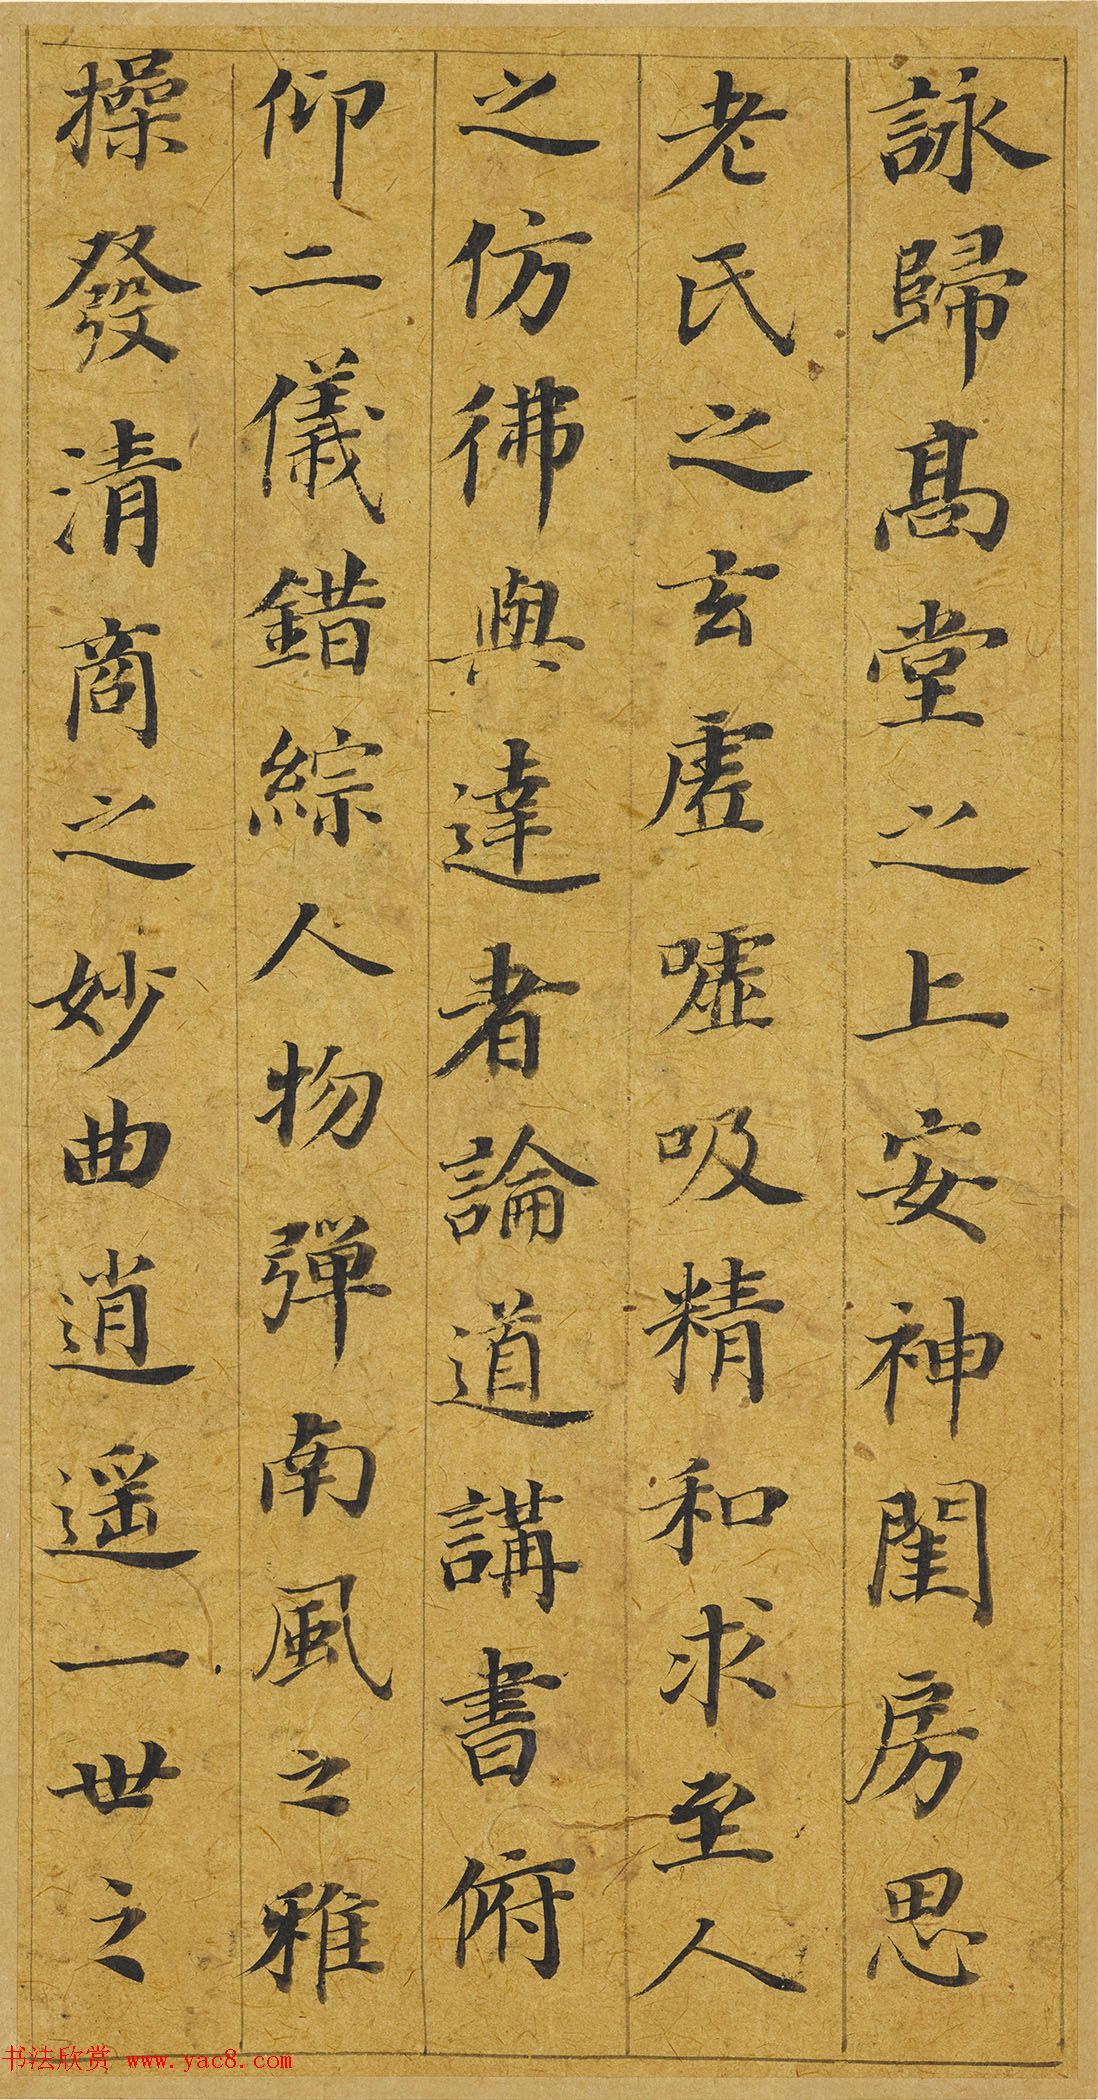 詠歸高堂之上安神閨房思
老氏之玄虛噓吸精和求至人
之仿彿與達者論道講書俯
仰二儀錯綜人物彈南風之雅
操發清商之妙曲逍遥一世之
书法欣赏 www.yac8.com